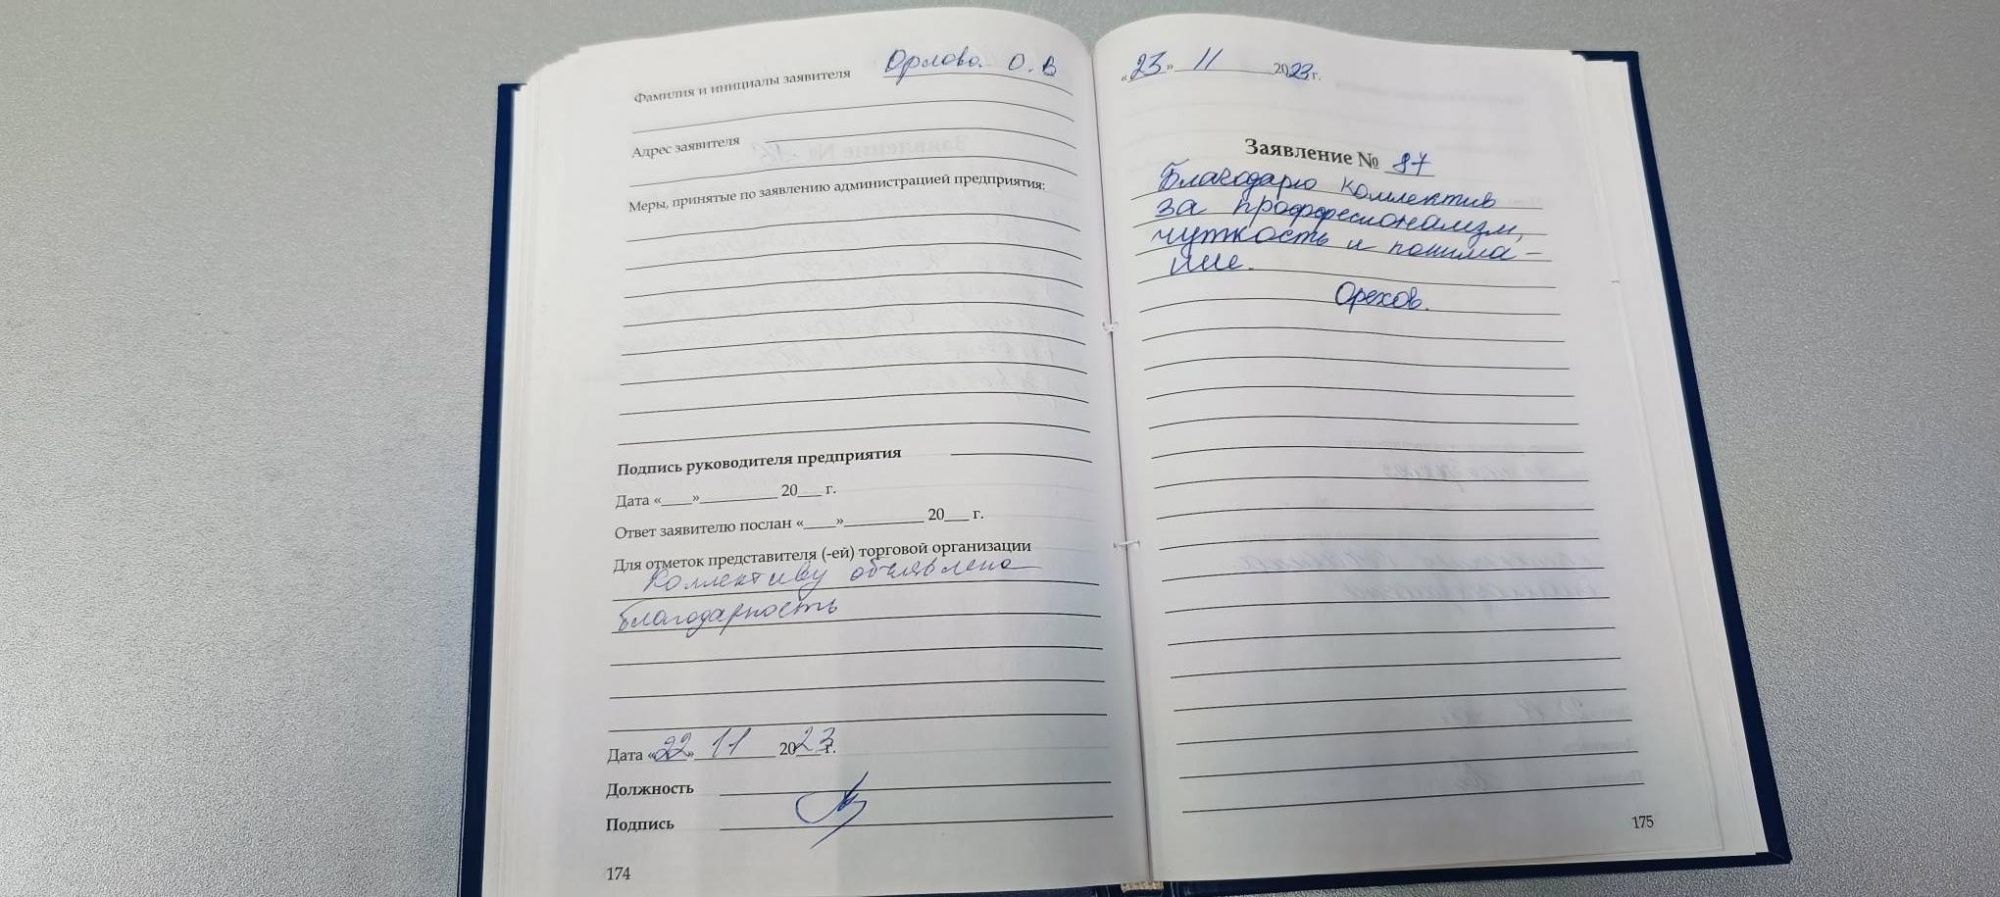 Фамилия и инициалы заявителя Орлова О.В
Адрес заявителя
Меры, принятые по заявлению администрацией предприятия:
Подпись руководителя предприятия
Дата «____»__________ 20___ г.
Ответ заявителю послан «____»__________ 20___ г.
Для отметок представителя (-ей) торговой организации
Коллективу объявлена
благодарность
Дата «22» 11 2023 г.
Должность
Подпись
174
«23» 11 2023 г.
Заявление № 87
Благодарю коллектив
за проффесионализм,
чуткость и понима-
ние.
Орехов.
175